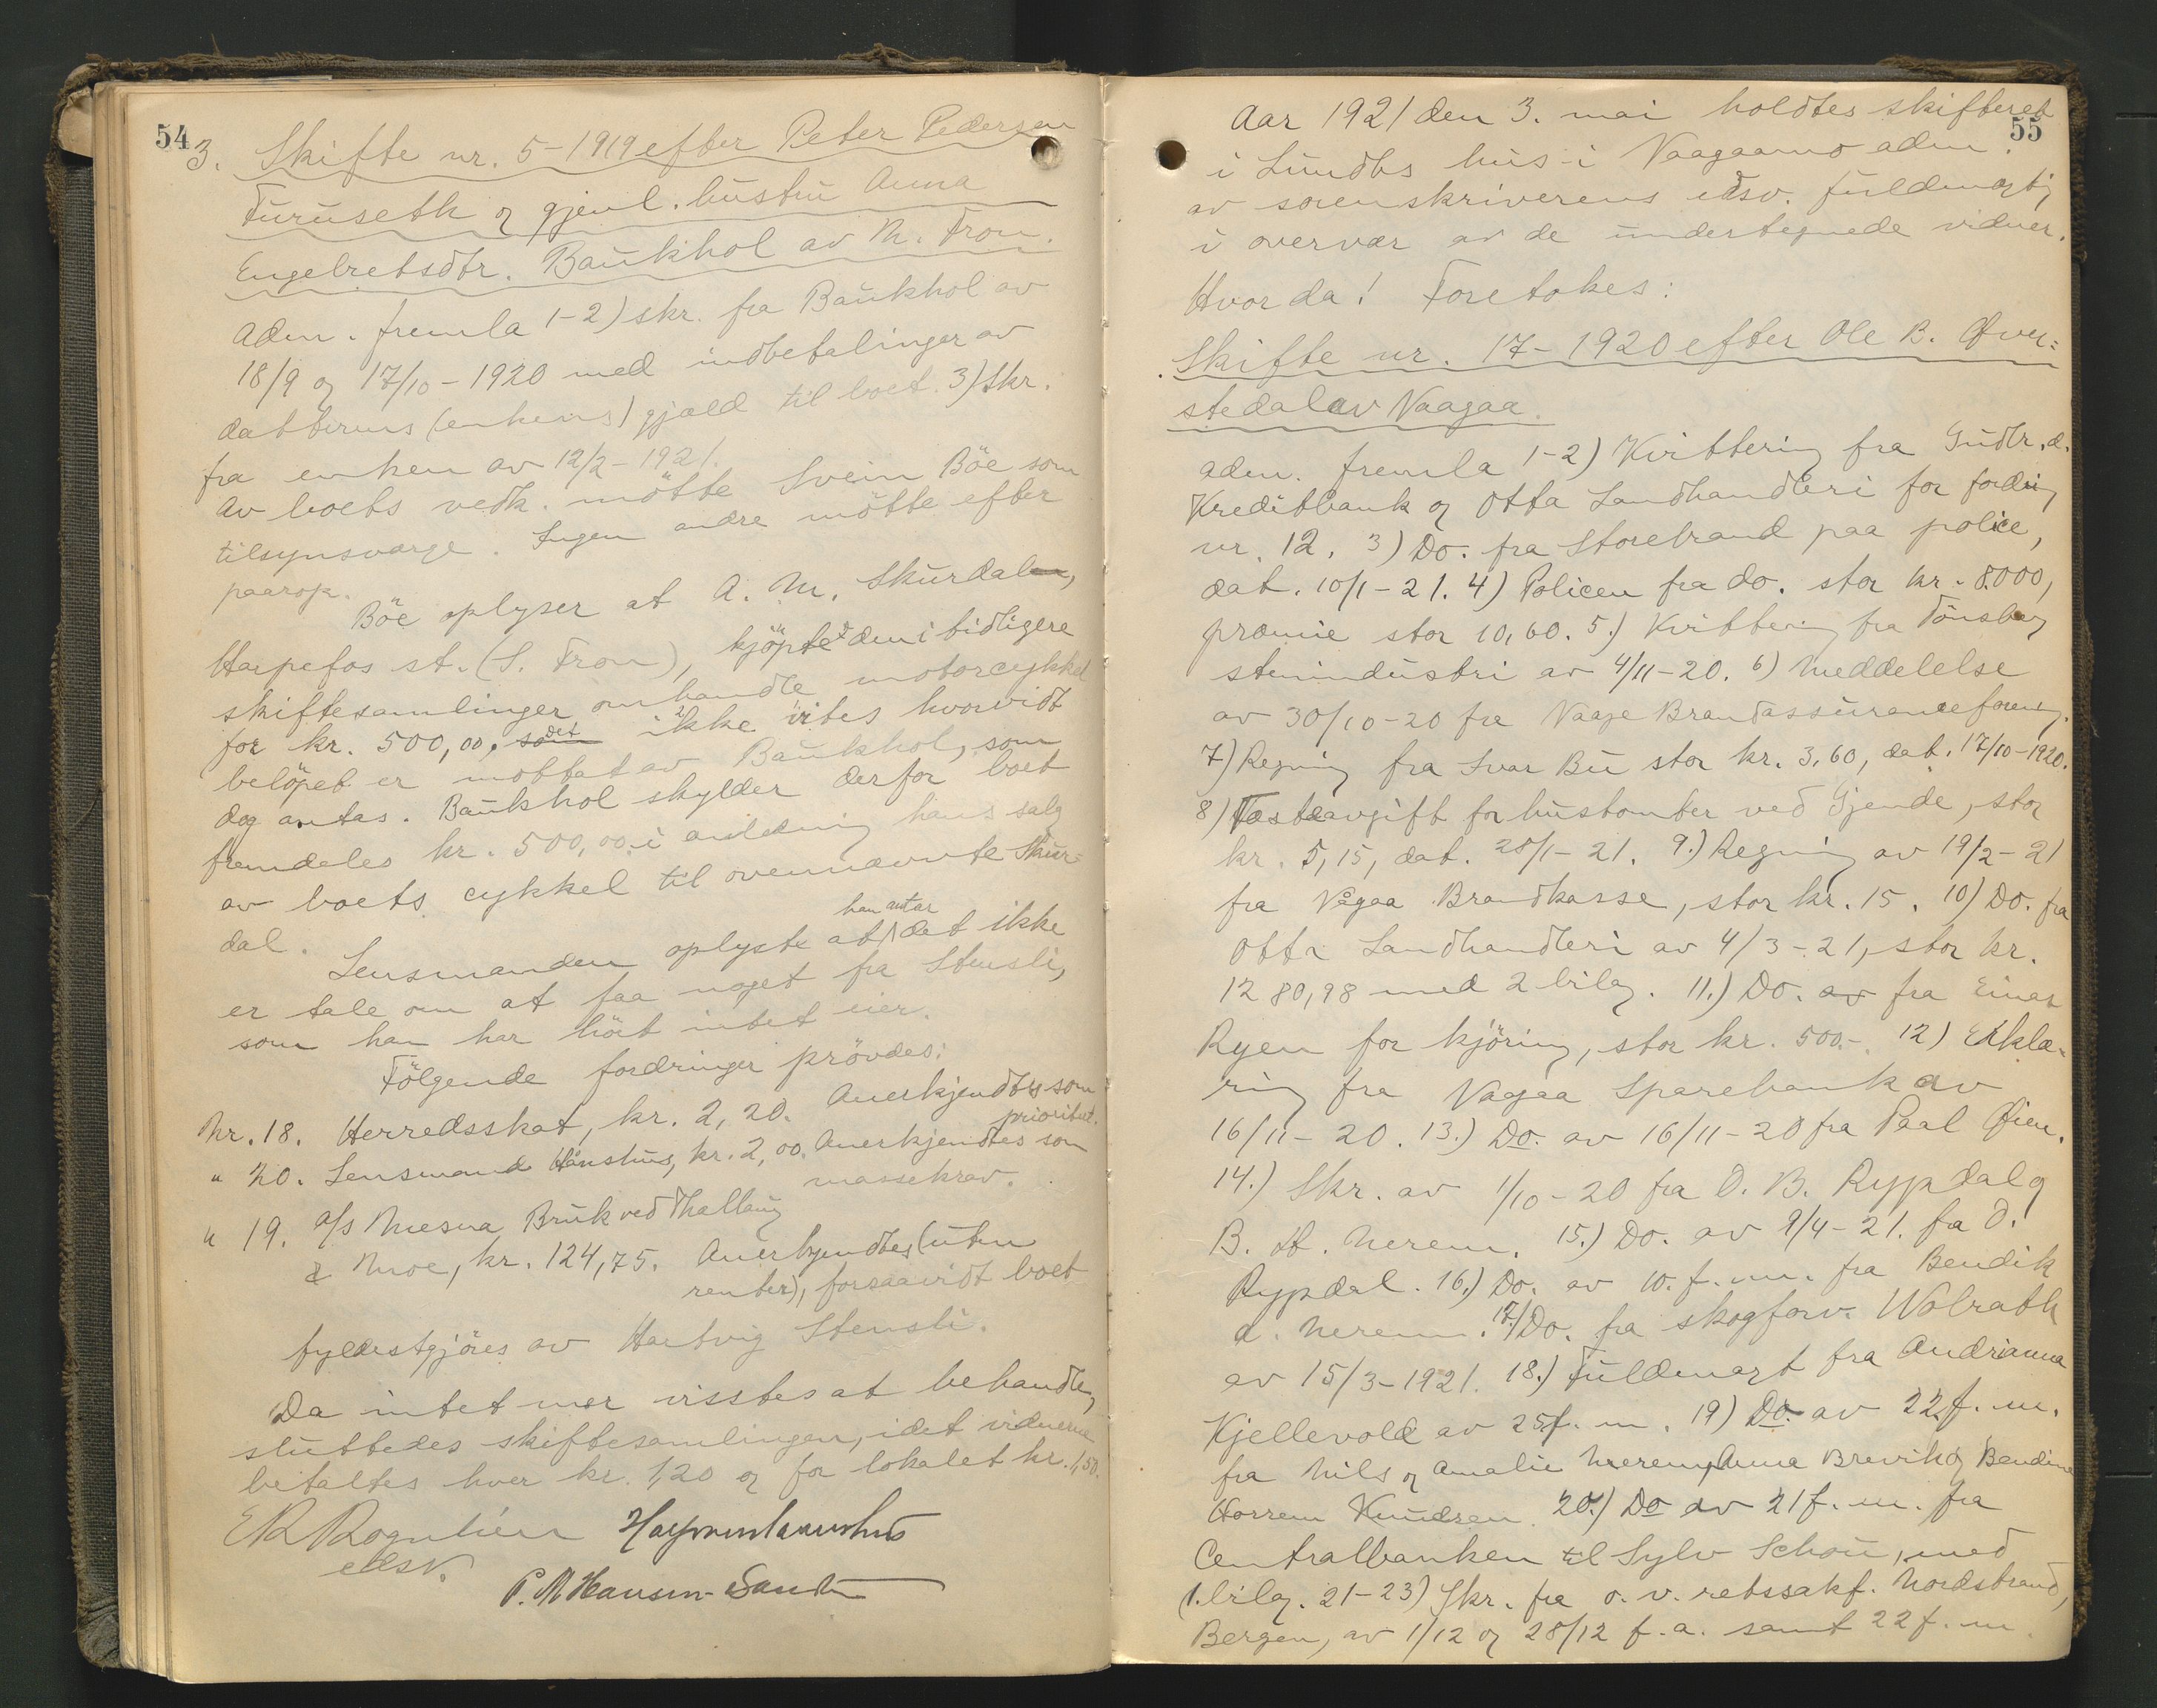 54
3. Skifte nr. 5-1919 efter Peter Pedersen
Furuseth og gjenl. hustru Anna
Engelretsdtr. Baukhol av N. Fron.
Adm. fremla 1-2) skr. fra Baukhol av
18/9 og 17/10-1920 med indbetalinger av
datterens (enkens) gjæld til boet. 3) Skr.
fra enken av 12/2-1921.
Av boets vedk. mötte Svein Böe som
tilsynsværge. Ingen andre mötte efter
paarop.
Böe oplyser at A. M. Skurdalen,
Harpefos st. (S. Fron), kjöpte den i tidligere
skiftesamlinger omhandle motorcykkel
for kr. 500,00, som det ikke vites hvorvidt
belöpet er mottat av Baukhol, som
dog antas. Baukhol skylder derfor boet
fremdeles kr. 500,00 i anledning hans salg
av boets cykkel til ovennævnte Skur-
dal.
Lensmanden oplyste at han antar det ikke
er tale om at faa noget fra Stensli,
som han har hört intet eier.
Fölgende fordringer prövdes:
Nr. 18. Herredsskat, kr. 2,20. Anerkjendtes som
prioritert.
" 20. Lensmand Hanshus, kr. 2,00. Anerkjendtes som
massekrav.
" 19. A/s Mesna Bruk ved Thallaug
& Moe, kr. 124,75. Anerkjendtes (uten
renter), forsaavidt boet
fyldestgjöres av Hartvig Stensli.
Da intet mer visstes at behandle,
sluttedes skiftesamlingen, idet vidnerne
betaltes hver kr. 1,20 og for lokalet kr. 1,50.
E R Rognlien
edsv.
P. M Hansen-Sandbu
55
Aar 1921 den 3. mai holdtes skifteret
i Lundhs hus i Vaagaamo adm.
av sorenskriverens edsv. fuldmægtig
i overvær av de undertegnede vidner.
Hvor da! Foretokes:
Skifte nr. 17-1920 efter Ole B. Øver-
stedal av Vaagaa.
Adm. fremla 1-2) Kvittering fra Gudbr.d.
Kreditbank og Otta Landhandleri for fordring
nr. 12. 3) Do. fra Storebrand paa police,
dat. 10/1-21. 4) Policen fra do. stor kr. 8000,
præmie stor 10,60. 5.) Kvittering fra Tönsberg
stenindustri av 4/11-20. 6) Meddelelse
av 30/10-20 fra Vaage Brandassuranceforening.
7) Regning fra Ivar Bu stor kr. 3,60, dat. 17/10-1920.
8) Fæsteavgift for hustomter ved Gjende, stor
kr. 5,15, dat. 25/1-21. 9.) Regning av 19/2-21
fra Vågaa Brandkasse, stor kr. 15. 10) Do. fra
Otta Landhandleri av 4/3-21, stor kr.
1280,98 med 2 bilag. 11.) Do. av fra Einar
Ryen for kjöring, stor kr. 500.-. 12) Erklæ-
ring fra Vagaa Sparebank av
16/11-20. 13.) Do. av 16/11-20 fra Paal Øien.
14.) Skr. av 1/10-20 fra O. B. Rypdal og
B. A. Nerem. 15.) Do. av 9/4-21. fra O.
Rypdal. 16.) Do. av 10. f. m. fra Bendik
A. Nerem. 17.) Do. fra skogforv. Wolrath
av 15/3-1921. 18.) Fuldmagt fra Andrianna
Kjellevold av 25 f. m. 19) Do. av 22 f. m.
fra Nils og Amalie Nerem, Anna Brevik og Bendine
Horrem Knudsen. 20.) Do av 21 f. m. fra
Centralbanken til Sylv Schou, med
1. bilag. 21-23) Skr. fra o. v. retssakf. Nordstrand,
Bergen, av 1/12 og 28/12 f. a. samt 22 f. m.